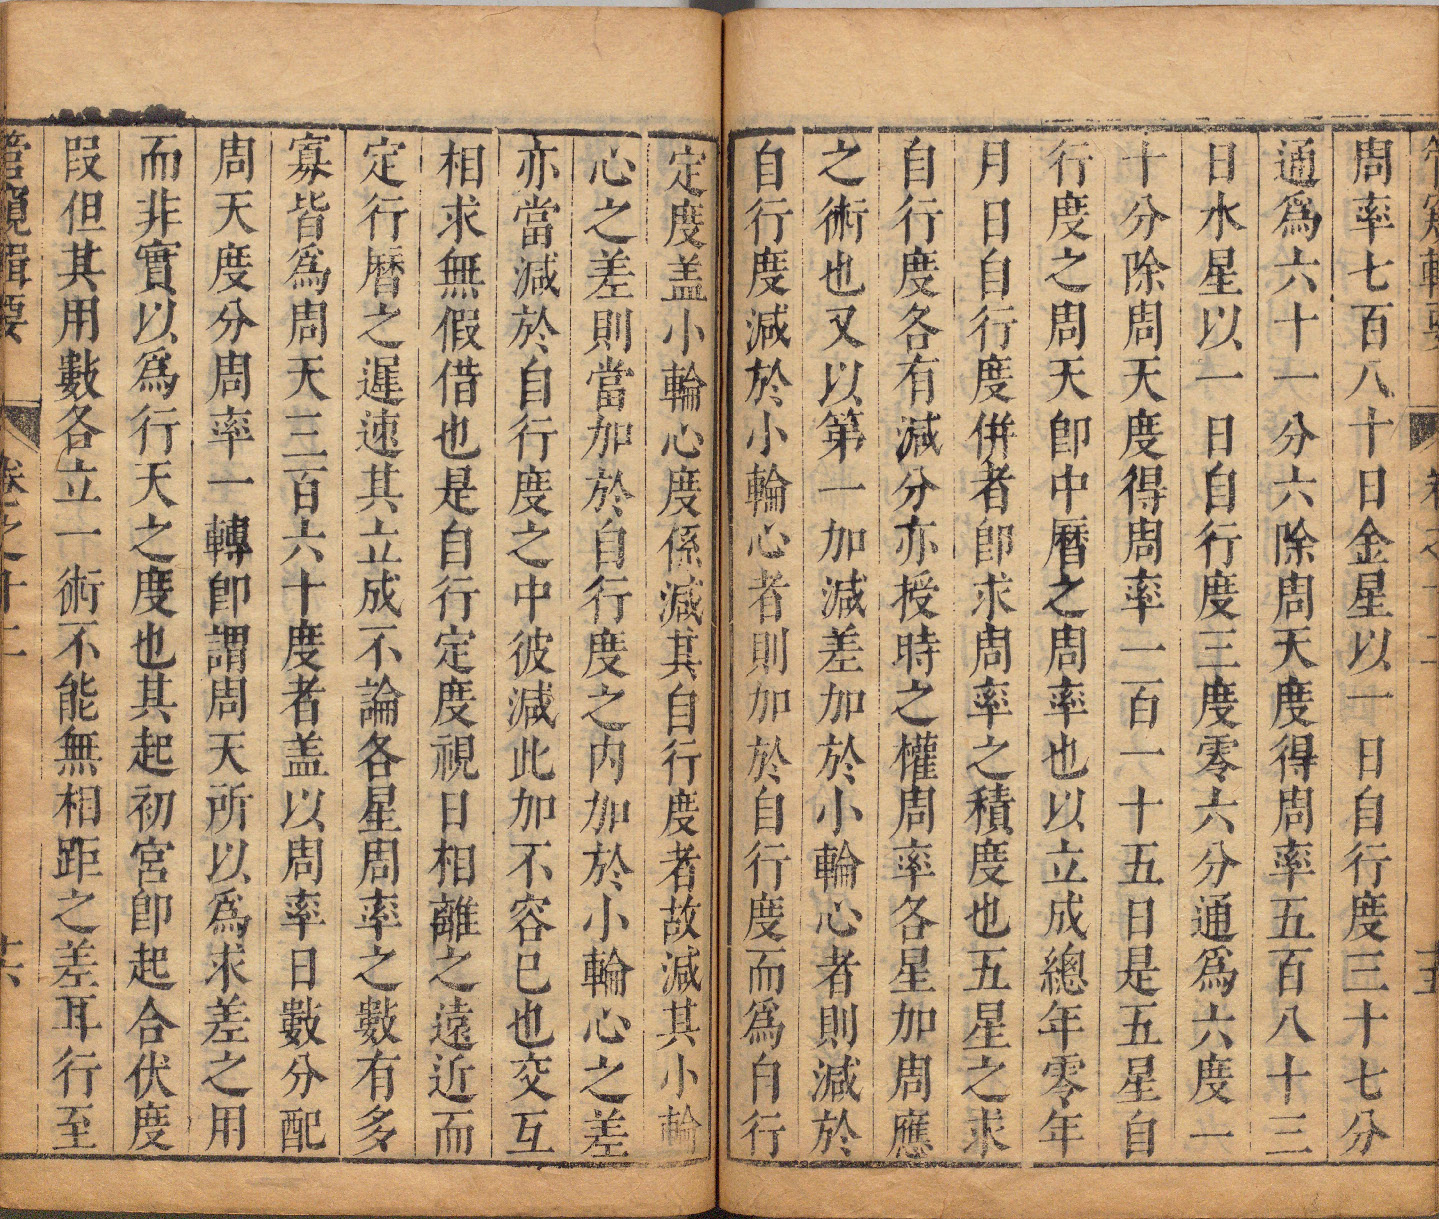 周率七百八十日金星以一日自行度三十七分
通爲六十一分六除周天度得周率五百八十三
日水星以一日自行度三度零六分通爲六度一
十分除周天度得周率一百一十五日是五星自
行度之周天卽中曆之周率也以立成總年零年
月日自行度併者卽求周率之積度也五星之求
自行度各有減分亦授時之權周率各星加周應
之術也又以第一加減差加於小輪心者則減於
自行度減於小輪心者則加於自行度而爲自行
定度盖小輪心度係減其自行度者故減其小輪
心之差則當加於自行度之内加於小輪心之差
亦當減於自行度之中彼減此加不容已也交互
相求無假借也是自行定度視日相離之遠近而
定行曆之遲速其立成不論各星周率之數有多
寡皆爲周天三百六十度者盖以周率日數分配
周天度分周率一轉卽謂周天所以爲求差之用
而非實以爲行天之度也其起初宮卽起合伏度
段但其用數各立一術不能無相距之差耳行至
管窺輯要 卷之十二 十六